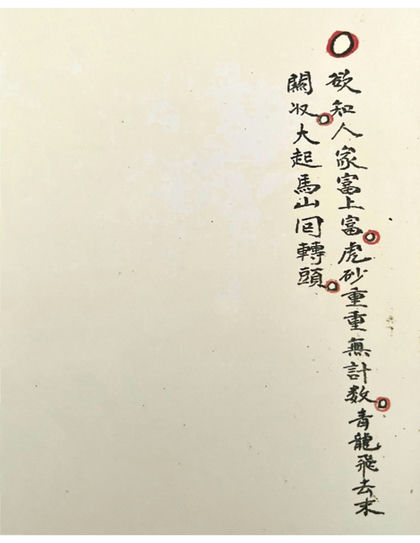 欲知人家富上富虎砂重重無計数青龍飛去末
關収大起馬山回轉頭